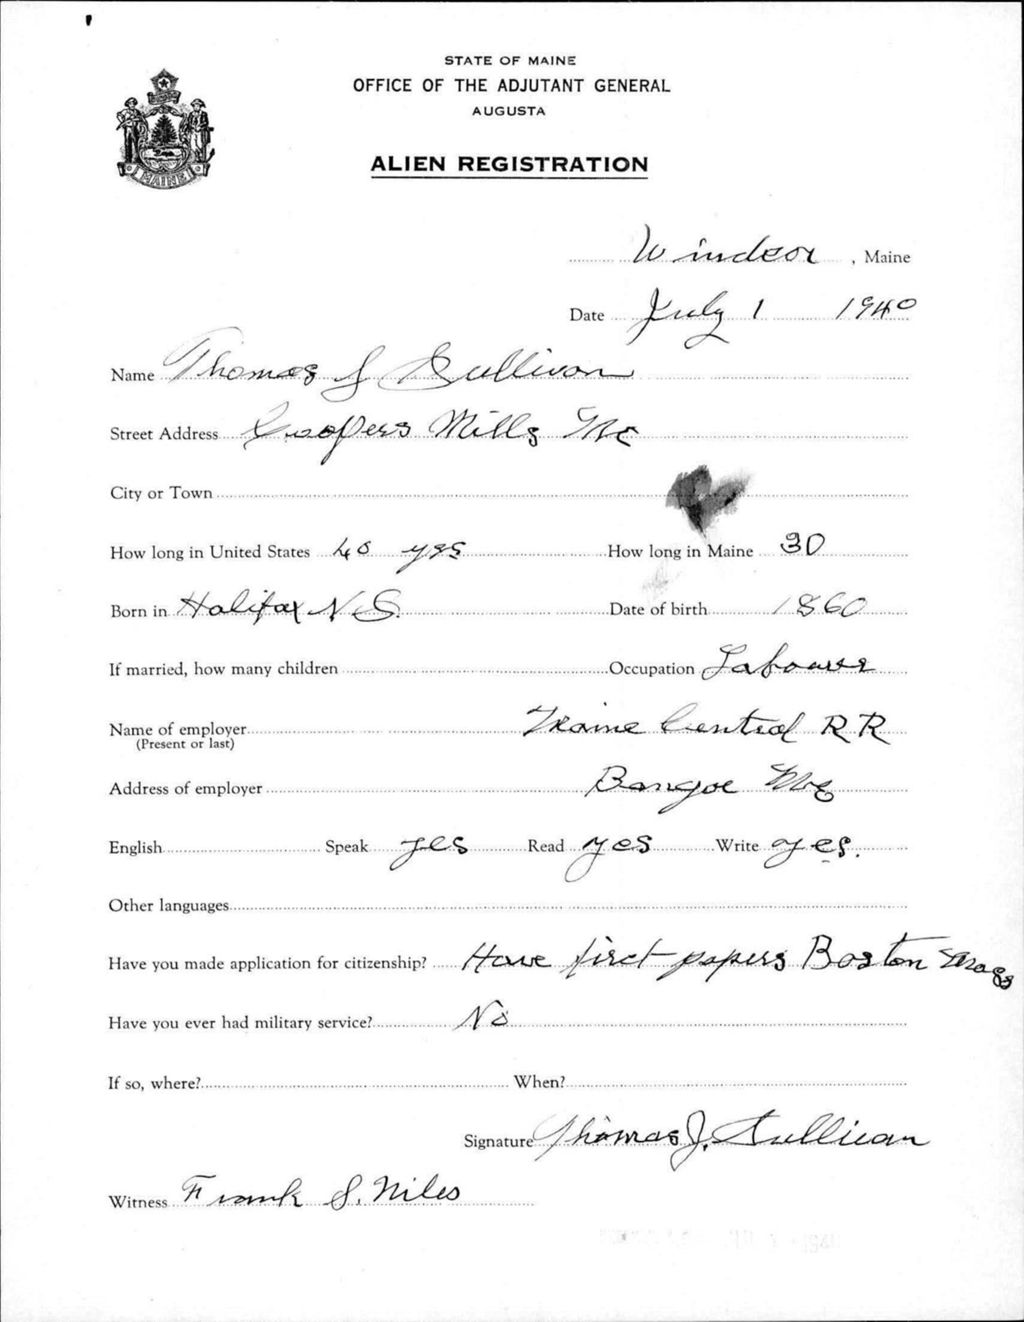 STATE OF MAINE
OFFICE OF THE ADJUTANT GENERAL
AUGUSTA
MAINE
ALIEN REGISTRATION
Windsor, Maine
Date July 1 1940
Name Thomas J Sullivan
Street Address Coopers Mills Me
City or Town
How long in United States 40 yrs How long in Maine 30
Born in Halifax N.S. Date of birth 1860
If married, how many children Occupation Labourer
Name of employer Maine Central R R
(Present or last)
Address of employer Bangor Me
English Speak yes Read yes Write yes.
Other languages
Have you made application for citizenship? Have first papers Boston Mass
Have you ever had military service? No
If so, where? When?
Signature Thomas J. Sullivan
Witness Frank S. Niles